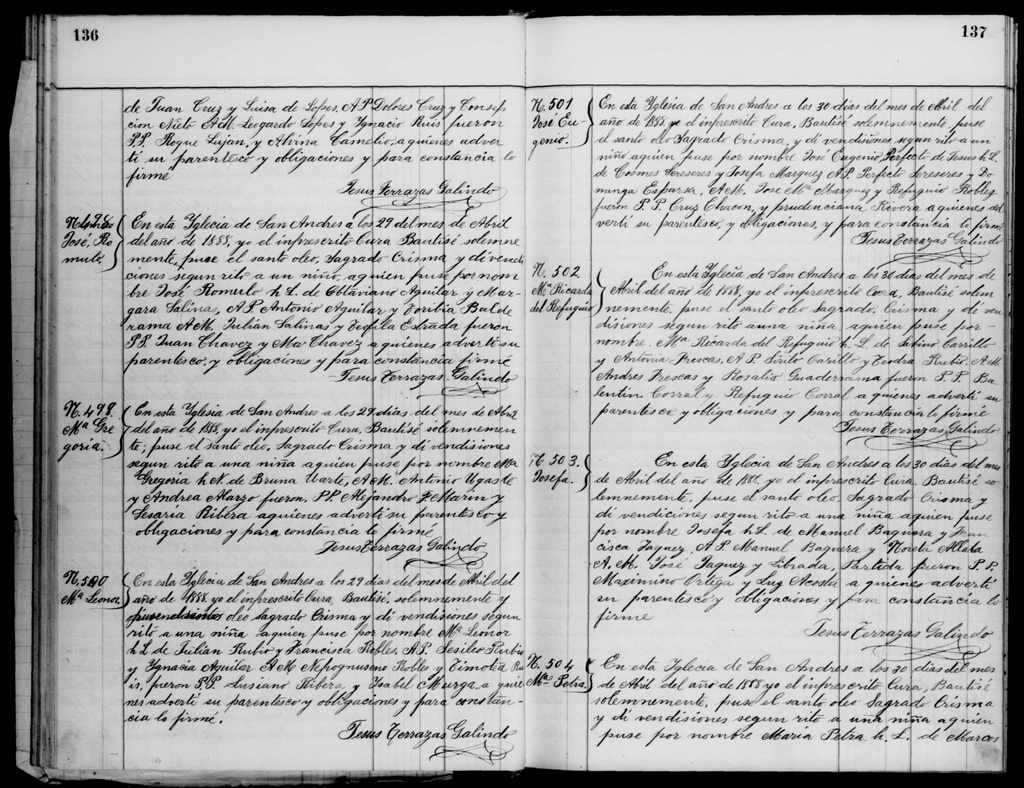 136
de Juan Cruz y Luisa de Lopes, A.P. Dolores Cruz y Consep
cion Nieto A.M. Leogardo Lopes y Ygnacio Ruis fueron
P.P. Roque Lujan, y Albina Camelio, aquienes adver
ti su parentesco y obligaciones y para constancia lo
firmé
Jesus Terrazas Galindo
N. 498
José, Ro
mulo.
En esta Yglecia de San Andres a los 29 del mes de Abril
del año de 1888, yo el infrescrito Cura Bautisé solemne
mente, puse el santo oleo, Sagrado Crisma y di vendi
ciones segun rito a un niño, aquien puse por nom
bre José Romulo h. L. de Obtaviano Aguilar y Mar
gara Salinas, A.P. Antonio Aguilar y Toribia Balde
rama A.M. Julián Salinas y Tequla Estrada fueron
P.P. Juan Chavez y Ma Chavez a quienes advertí su
parentesco, y obligaciones y para constancia firmé
Jesus Terrazas Galindo
N. 499.
Ma Gre
goria.
En esta Yglesia de San Andres a los 29 dias del mes de Abril
del año de 1888, yo el infrescrito Cura, Bautisé solemnemen
te; puse el santo oleo, Sagrado Crisma y di vendisiones
segun rito a una niña aquien puse por nombre Ma
Gregoria h. N. de Bruna Uarte, A.M. Antonio Ugarte
y Andrea Marzo fueron, P.P. Alejandro F. Marin y
Sesaria Ribera aquienes advertí su parentesco y
obligaciones y para constancia lo firmé
Jesus Terrazas Galindo
N. 500
Ma Leonor.
En esta Yglecia de San Andres a los 29 dias del mes de Abril del
año de 1888, yo el infrescrito Cura, Bautisé, solemnemente y
oleo sagrado Crisma y di vendisiones segun
rito a una niña aquien puse por nombre Ma Leonor
h L de Julian Rubio y Francisca Robles, A.P. Sesileo Rubio
y Ygnacia Aguilar A.M. Nepognuseno Robles y Timotia Ru
is, fueron P.P. Lusiano Ribera y Ysabel Murga, a quie
nes advertí su parentesco y obligaciones y para constan-
cia lo firmé.
Jesus Terrazas Galindo
137
N. 501
José Eu-
genio.
En esta Yglesia de San Andres a los 30 dias del mes de Abril del
año de 1888 yo el infrescrito Cura, Bautisé solemnemente, puse
el santo oleo Sagrado Crisma, y di vendisiones segun rito a un
niño aquien puse por nombre José Eugenio Perfecto de Jesus h. L.
de Cosmes Sereseres y Josefa Marquez A.P. Perfecto Sereseres y Do
minga Esparsa, A.M. Jose Ma Marquez y Refuguio Robles
fueron P.P. Cruz Chacon, y prudenciana Rivera aquienes ad
vertí su parentesco, y obligaciones, y para constancia lo firmé
Jesus Terrazas Galindo
N. 502
Ma Ricarda
del Refuguio
En esta Yglecia de San Andres a los 30 dias del mes de
Abril del año de 1888, yo el infrescrito Cura, Bautisé solem
nemente, puse el santo oleo Sagrado, Crisma y de ven
disiones segun rito auna niña aquien puse por-
nombre, Ma Recarda del Refuguio h. L. de Sabino Carrillo
y Antonia Frescas, A.P. Sirilo Carrillo y Teodra Rubio, A.M.
Andres Frescas y Rosalia Guaderrama fueron P.P. Ba
lentin Corral y Refuguio Corral a quienes adverti su
parentesco y obligaciones y para constancia lo firmé
Jesus Terrazas Galindo
N. 503.
Josefa.
En esta Yglecia de San Andres a los 30 dias del mes
de Abril del año de 1888, yo el infrescrito Cura Bautisé so
lemnemente, puse el santo oleo Sagrado Crisma y
di vendiciones segun rito a una niña aquien puse
por nombre Josefa h. L. de Manuel Baquera y Fran
cisca Jaquez, A.P. Manuel Baquera y
A.M. José Jaquez y Librada, Partida fueron P.P.
Maximino Ortega y Luz Acosta a quienes adverti
su parentesco y obligaciones y para constancia lo
firme
Jesus Terrazas Galindo
N. 504
Ma Petra.
En está Yglecia de San Andres a los 30 dias del mes
de Abril del año de 1888 yo el infrescrito Cura, Bautisé
solemnemente, puse el santo oleo Sagrado Crisma
y di vendisiones segun rito a una niña aquien
puse por nombre Maria Petra h. L. de Marcos